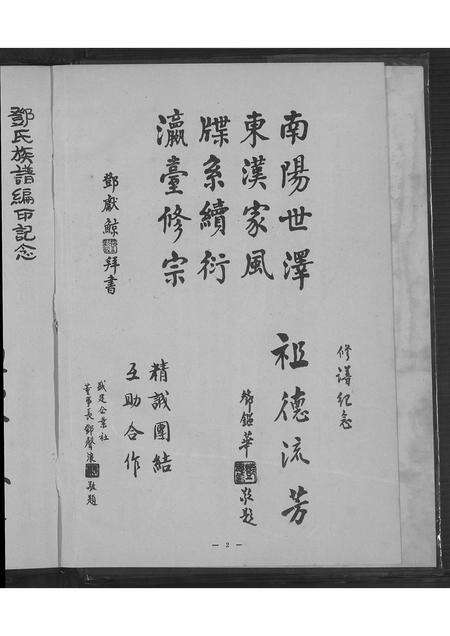 南陽世澤
東漢家風
牒系續衍
瀛臺修宗
鄧獻鯨拜書
修譜紀念
祖德流芳
鄧鎰華敬題
精誠團結
互助合作
企業社
董事長鄧聲浪敬題
— 2 —
鄧氏族譜編印記念